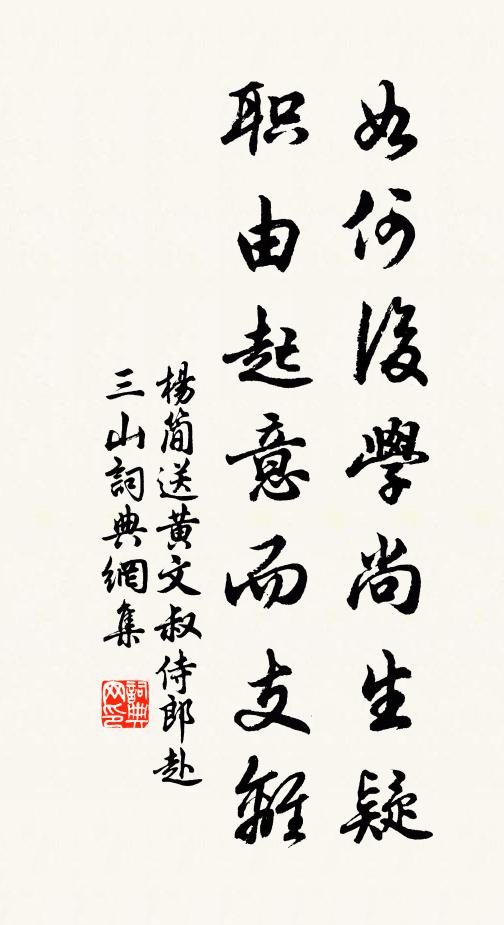 如何後學尚生疑
职由起意而支離
楊简送黄文叔侍郎赴
三山詞典網集
詞典
网印